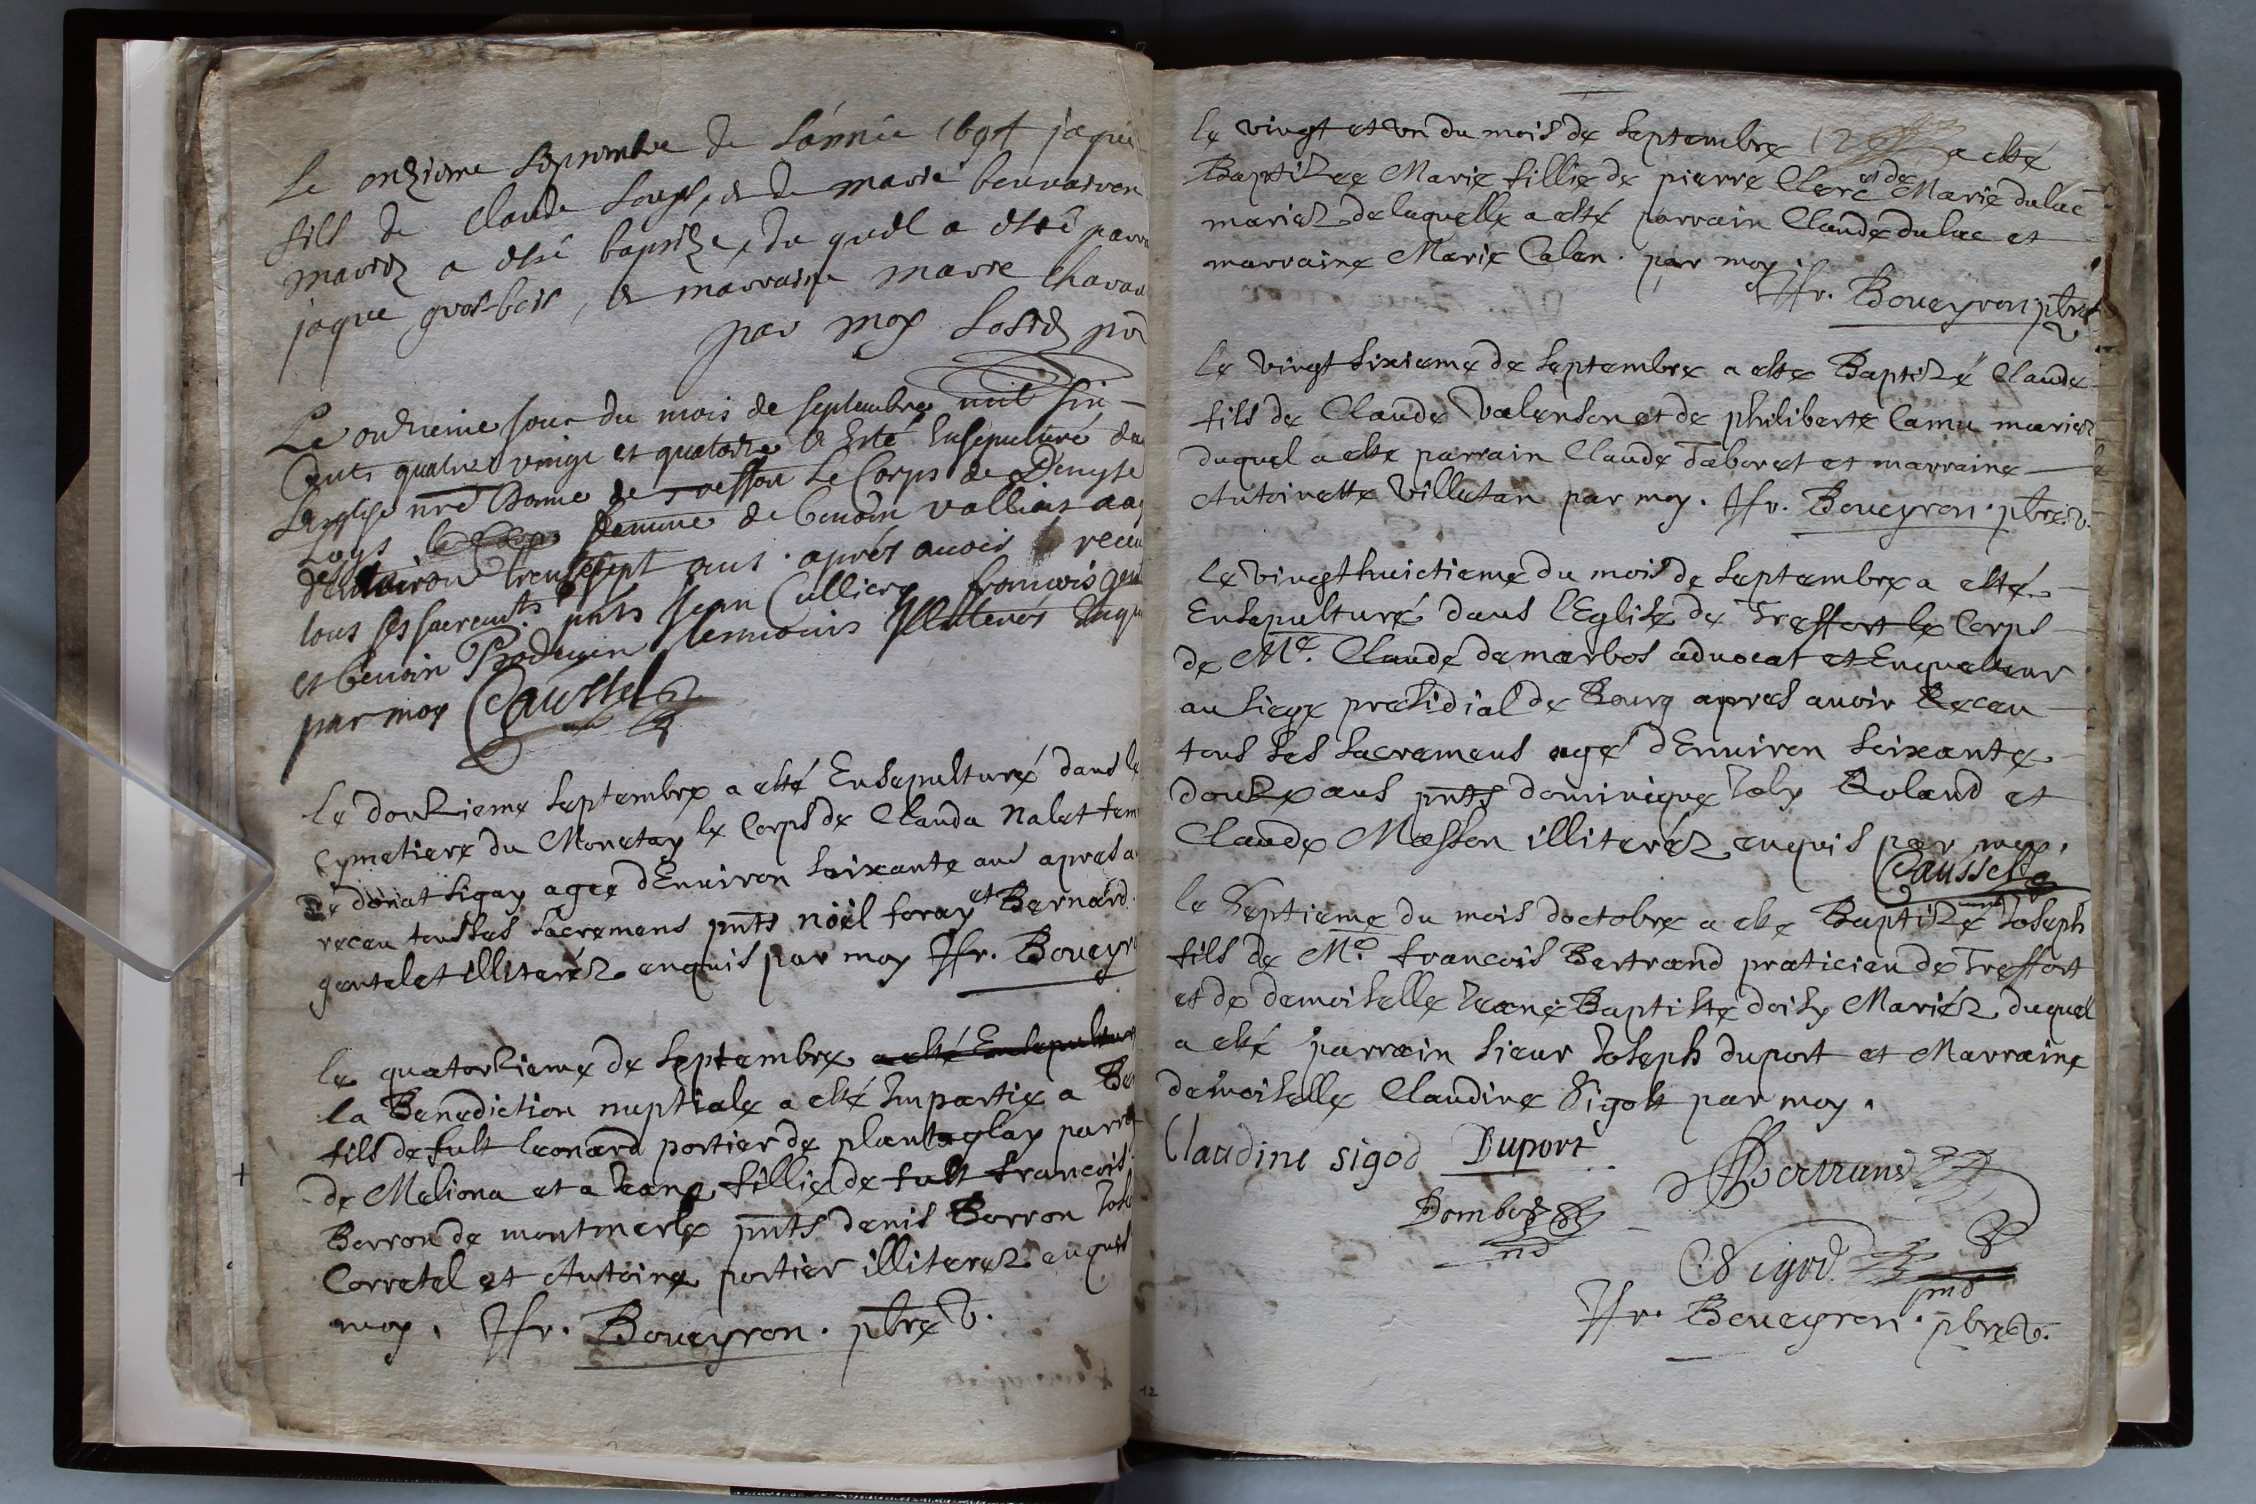 Le onzieme Septembre de l'année 1694 jaque
fils de Claude Loup, & de marie
mariez a esté baptize, du quel a esté parra
jaque gros-bois, & marraine marie
par moy
Le onzieme jour du mois de septembre mil six
Cents quatre vingt et quatorze a Esté Ensepulturé da
L'Esglise nre Dame de treffort Le Corps de Denyse
Loys femme de benoin vallier aag
d'Environ trente sept ans . aprés avoir receu
tous ses sacremts pnts Jean Cullier francois
et benoin tesmoins Illiterés Enqu
par moy Caussel
le douzieme Septembre a esté Ensepulturé dans le
Cymetiere du Monetay le Corps de Clauda Nalet fem
de donat sigay agee d'Enuiron soixante ans apres a
receu tous ses sacremens pnts noël foray et Bernard
gentelet illiteréz enquis par moy Hr. Boueyro
le quatorzieme de septembre a esté Ensepulture
la Benediction nuptiale a esté Impartie a Ber
fils de fult Leonard portier de plantaglay parro
de Meliona et a Ieane fillie de fult francois
Borron de montmerle pnts denis Borron Iose
Corretel et Antoine portier illiterez enquis
moy. Hr. Boueyron. pbre V.
le vingt et un du mois de septembre a esté
Baptizee Marie fillie de pierre Clerc et de Marie dulac
mariez de laquelle a esté parrain Claude dulac et
marraine Marie Calan. par moy.
Hr. Boueyron pbre
V.
le vingt sixieme de septembre a este Baptizé Claude
fils de Claude Valenson et de philiberte Camu mariez
duquel a este parrain Claude Taboret et marraine
Antoinette Villetan par moy. Hr. Boueyron. pbre V.
le vingt huictieme du mois de septembre a esté
Ensepulturé dans l'Eglise de Treffort le Corps
de Me. Claude demarbos advocat et Enquesteur
au siege presidial de Bourg apres auoir Receu
tous ses sacremens agé d'Enuiron soixante
douze ans pnts dominique Ioly Roland et
Claude Masson illiteréz enquis par moy.
Caussel
le Septieme du mois d'octobre a este Baptizé Ioseph
fils de Me. francois Bertrand praticien de Treffort
et de demoiselle Ieane Baptiste doisy Mariéz duquel
a esté parrain sieur Ioseph duport et Marraine
demoiselle Claudine Sigolt par moy.
Claudine sigod Duport
Bertrand
Dombez
Sigod
Hr. Boueyron. pbre V.
12